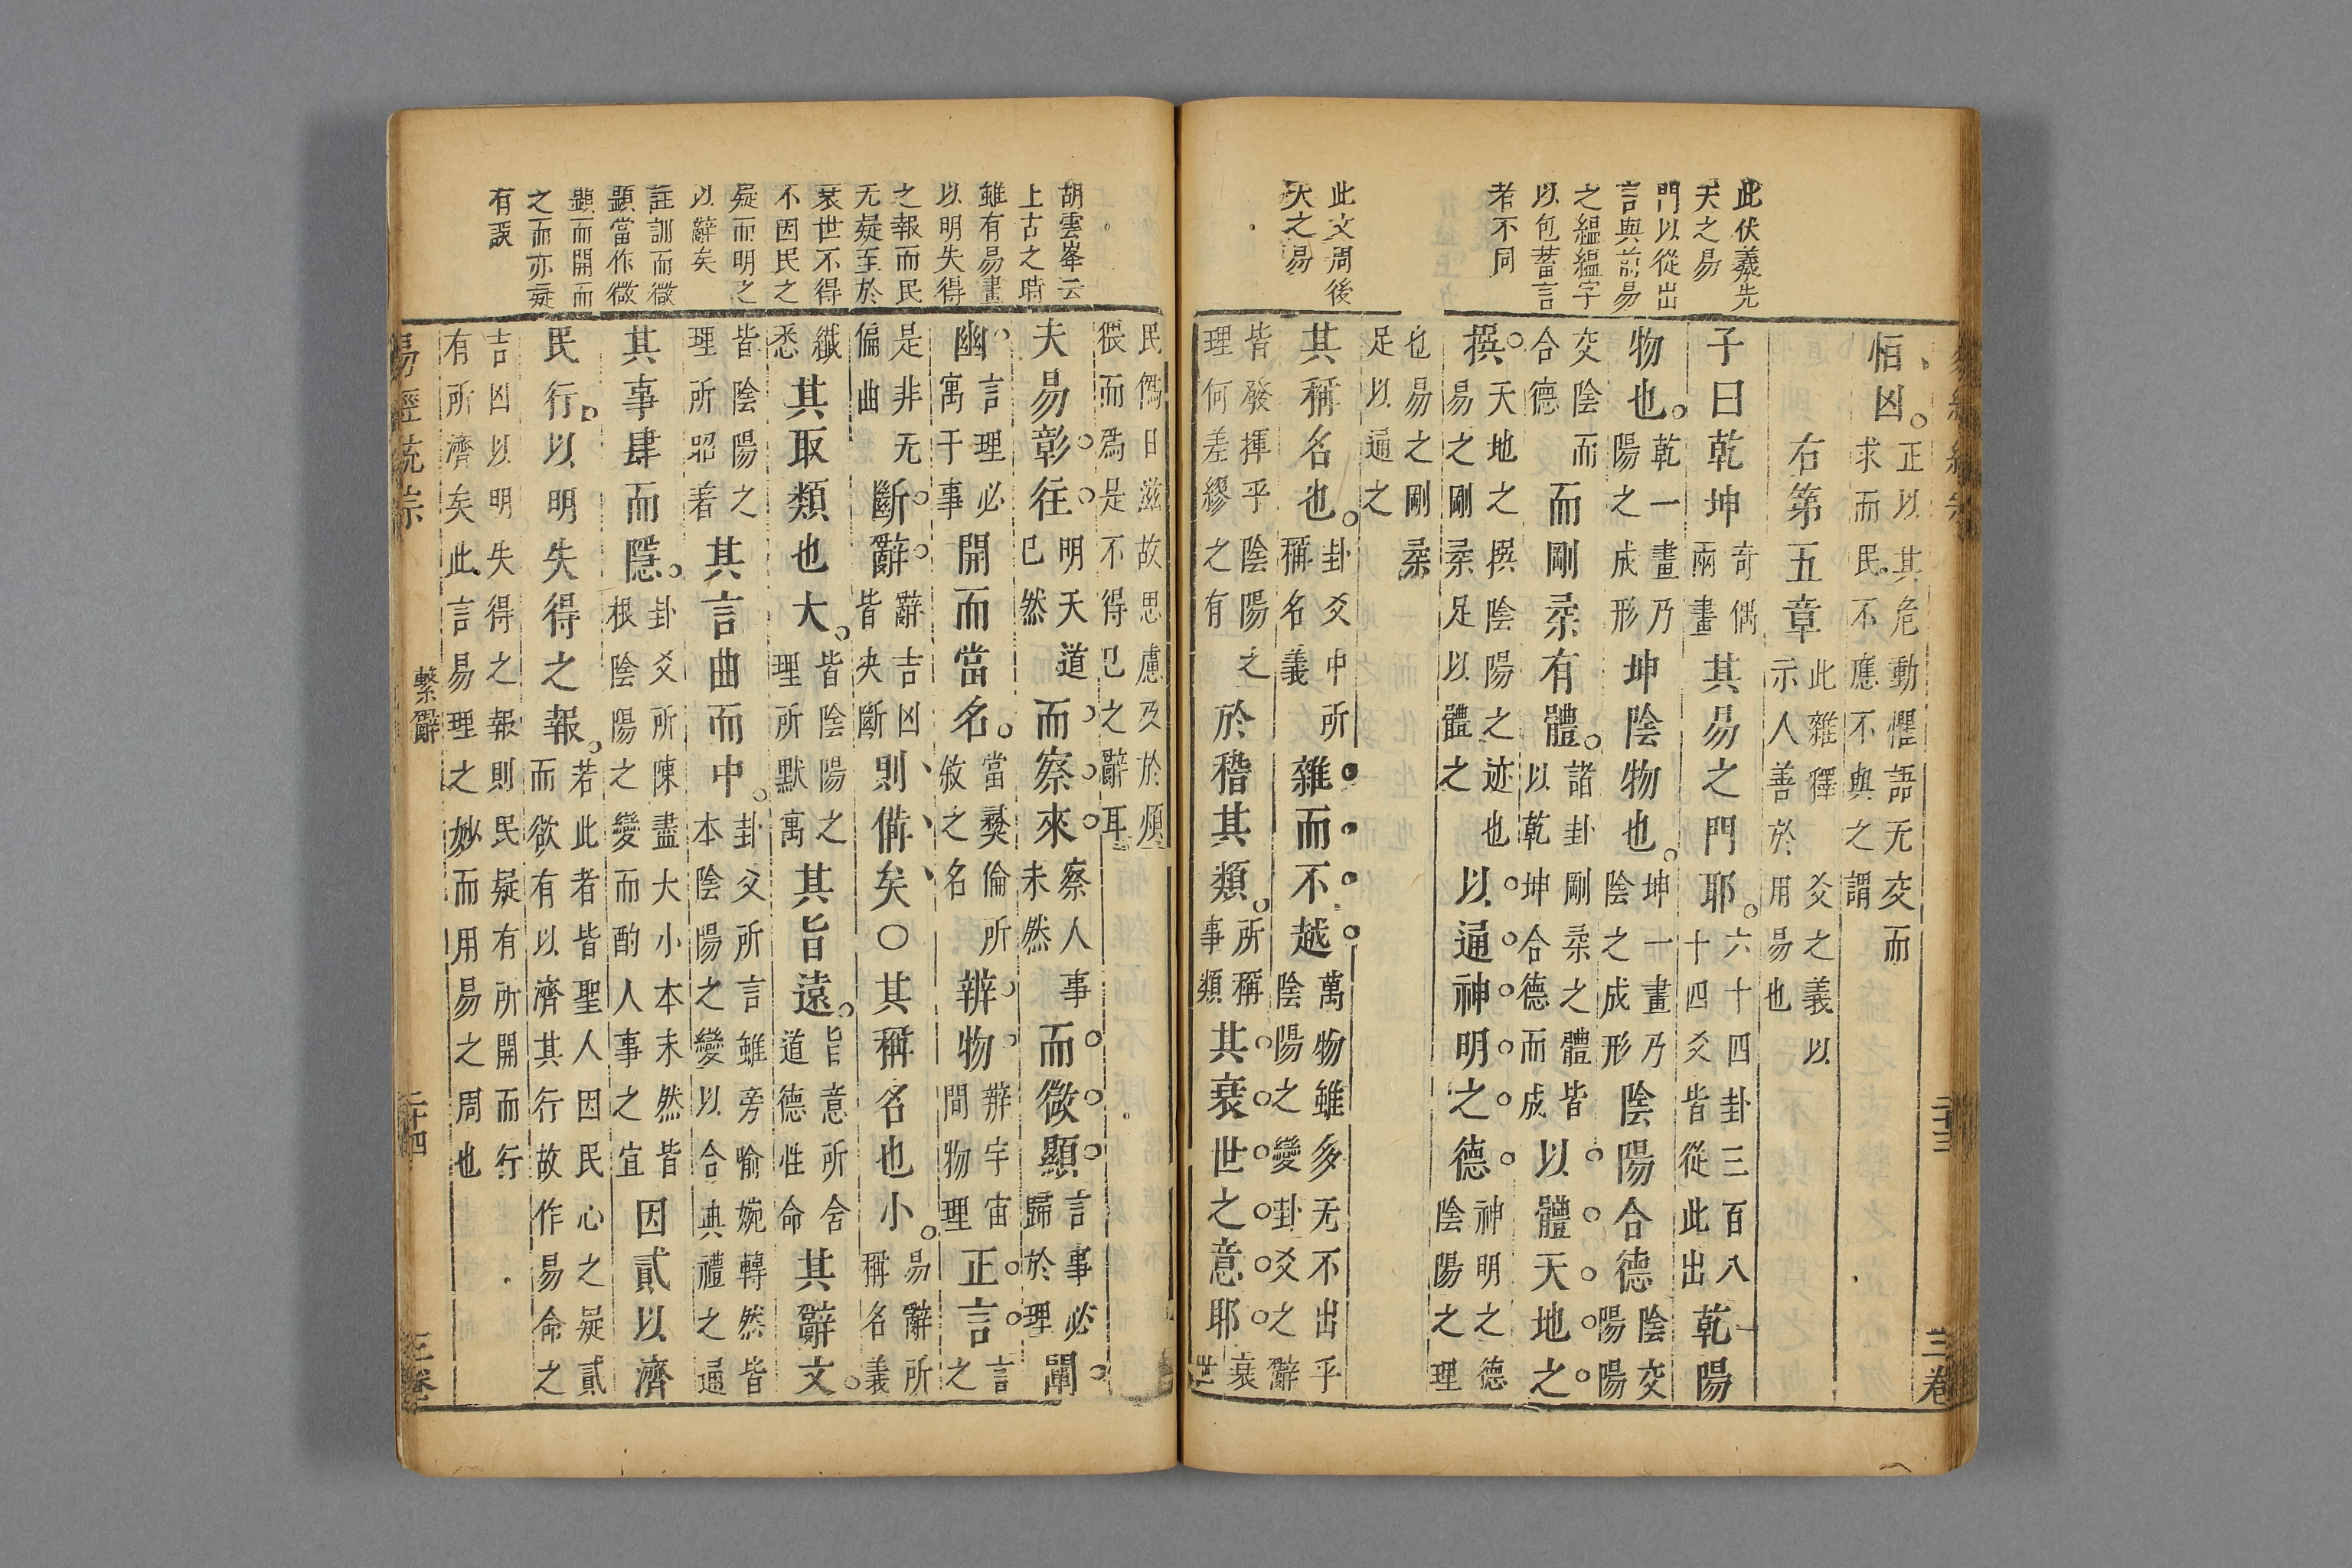 此伏羲先
天之易
門以從出
言與前易
之縕縕字
以包蓄言
者不同
此文周後
天之易
恒凶。正以其危動懼語无交而求而民不應不與之謂
右第五章此雜釋爻之義以示人善於用易也
子曰乾坤奇偶兩畫其易之門耶。六十四卦三百八十四爻皆從此出乾陽
物也。乾一畫乃陽之成形坤陰物也。坤一畫乃陰之成形陰陽合德陰交陽陽
交陰而合德而剛柔有體。諸卦剛柔之體皆以乾坤合德而成以體天地之
撰天地之撰陰陽之迹也易之剛柔足以體之以通神明之德神明之德陰陽之理
也易之剛柔足以通之
其稱名也。卦爻中所稱名義雜而不越萬物雖多无不出乎陰陽之變卦爻之辭
皆發揮乎陰陽之理何差繆之有於稽其類。所稱事類其衰世之意耶衰世
三卷
胡雲峯云
上古之時
雖有易畫
以明失得
之報而民
无疑至於
衰世不得
不因民之
疑而明之
以辭矣
註訓而微
顯當作微
顯而開而
之而亦疑
有誤
民僞日滋故思慮及於煩猥而爲是不得已之辭耳
夫易彰往明天道已然而察來察人事未然而微顯言事必歸於理闡
幽言理必寓于事開而當名。當彛倫所攸之名辨物辨宇宙間物理正言言之
是非无偏曲斷辭辭吉凶皆央斷則備矣〇其稱名也小。易辭所稱名義
纖悉其取類也大。皆陰陽之理所默寓其旨遠。旨意所含道德性命其辭文
皆陰陽之理所昭著其言曲而中。卦爻所言雖旁喻婉轉然皆本陰陽之變以合典禮之通
其事肆而隱。卦爻所陳盡大小本末然皆根陰陽之變而酌人事之宜因貳以濟
民行以明失得之報。若此者皆聖人因民心之疑貳而欲有以濟其行故作易命之
吉凶以明失得之報則民疑有所開而行有所濟矣此言易理之妙而用易之周也
易經統宗
繫辭
二十四
三卷